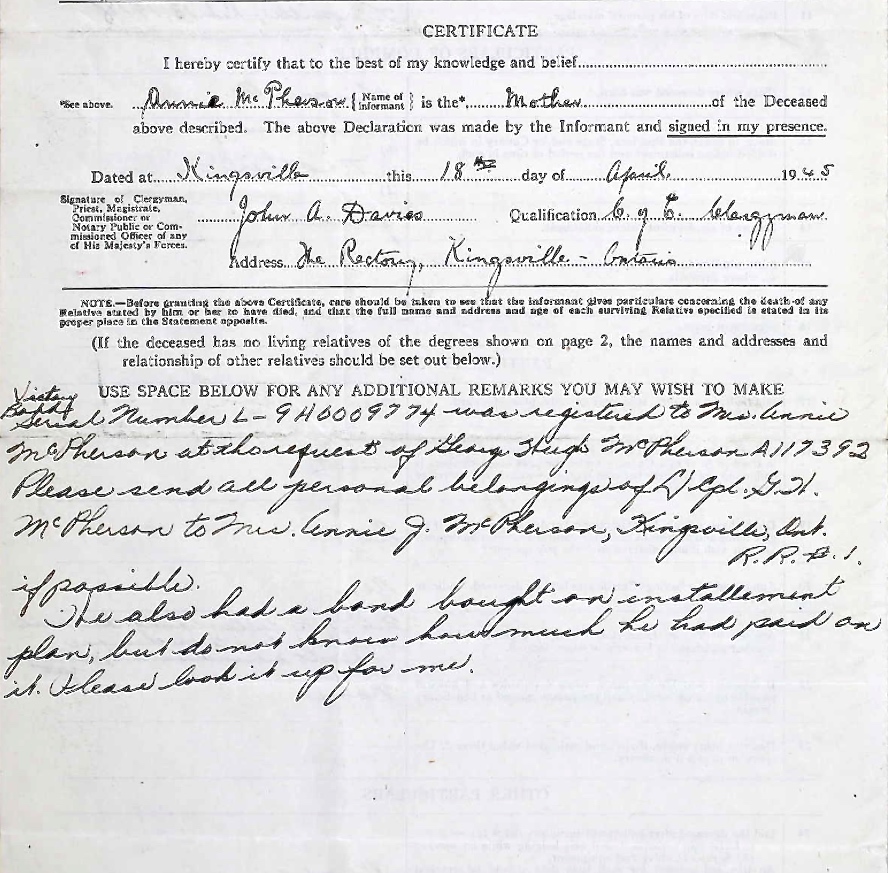 CERTIFICATE
I hereby certify that to the best of my knowledge and belief
*See above. Annie McPherson {Name of Informant} is the* Mother of the Deceased
above described. The above Declaration was made by the Informant and signed in my presence.
Dated at Kingsville this 18th day of April 1945
Signature of Clergyman, Priest, Magistrate, Commissioner or Notary Public or Commissioned Officer of any of His Majesty's Forces.
John A. Davies Qualification C. of E. Clergyman.
Address The Rectory, Kingsville - Ontario
NOTE.—Before granting the above Certificate, care should be taken to see that the informant gives particulars concerning the death of any
Relative stated by him or her to have died, and that the full name and address and age of each surviving Relative specified is stated in its
proper place in the Statement opposite.
(If the deceased has no living relatives of the degrees shown on page 2, the names and addresses and
relationship of other relatives should be set out below.)
USE SPACE BELOW FOR ANY ADDITIONAL REMARKS YOU MAY WISH TO MAKE
Victory Bond
Serial Number L-9H0009774 was registered to Mrs. Annie
McPherson at the request of Georg Hugh McPherson A117392
Please send all personal belongings of L/Cpl. G.H.
McPherson to Mrs. Annie J. McPherson, Kingsville, Ont.
R.R.#.1.
if possible.
He also had a bond bought on installement
plan, but do not know how much he had paid on
it. Please look it up for me.